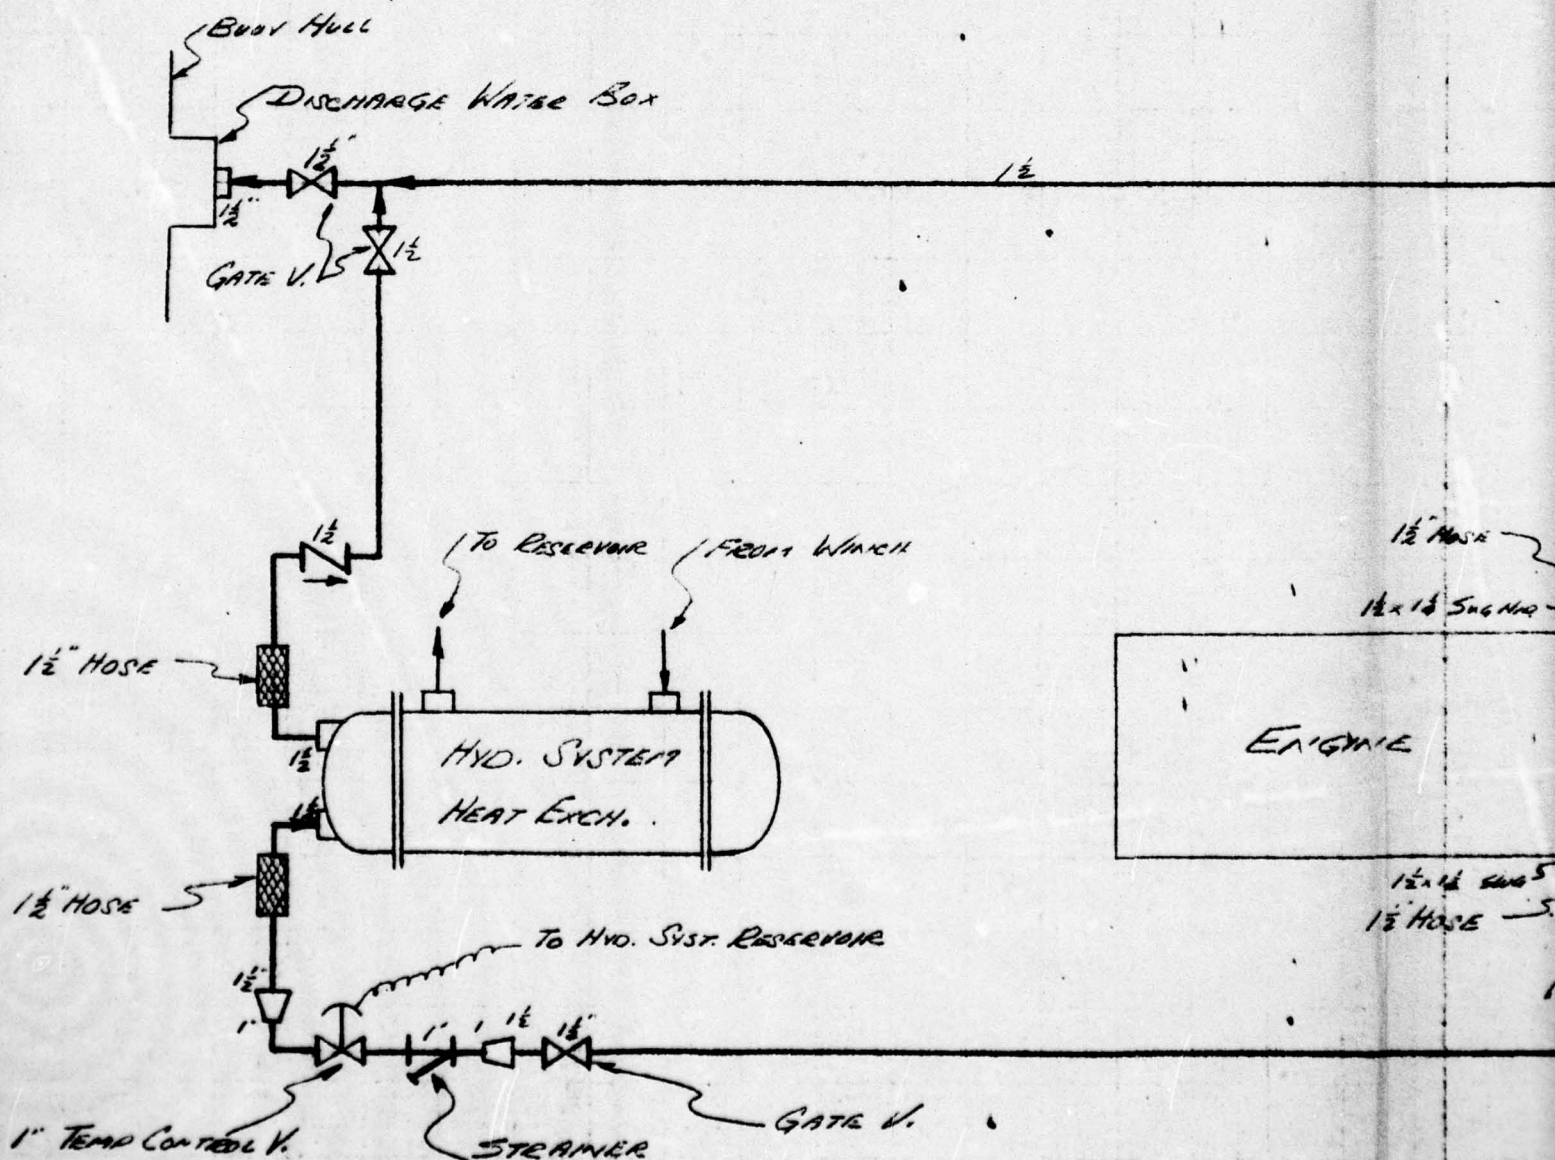 BUOY HULL
DISCHARGE WATER BOX
1½"
1½
1½"
GATE V.
1½
1½
TO RESERVOIR
FROM WINCH
1½" HOSE
1½ x 1¼ SWG NIP
1½" HOSE
ENGINE
1½
HYD. SYSTEM
HEAT EXCH.
1½
1½ x 1¼ SWG
1½" HOSE
1½" HOSE
TO HYD. SYST. RESERVOIR
1½"
1"
1"
1
1½
1½"
GATE V.
1" TEMP CONTROL V.
STRAINER